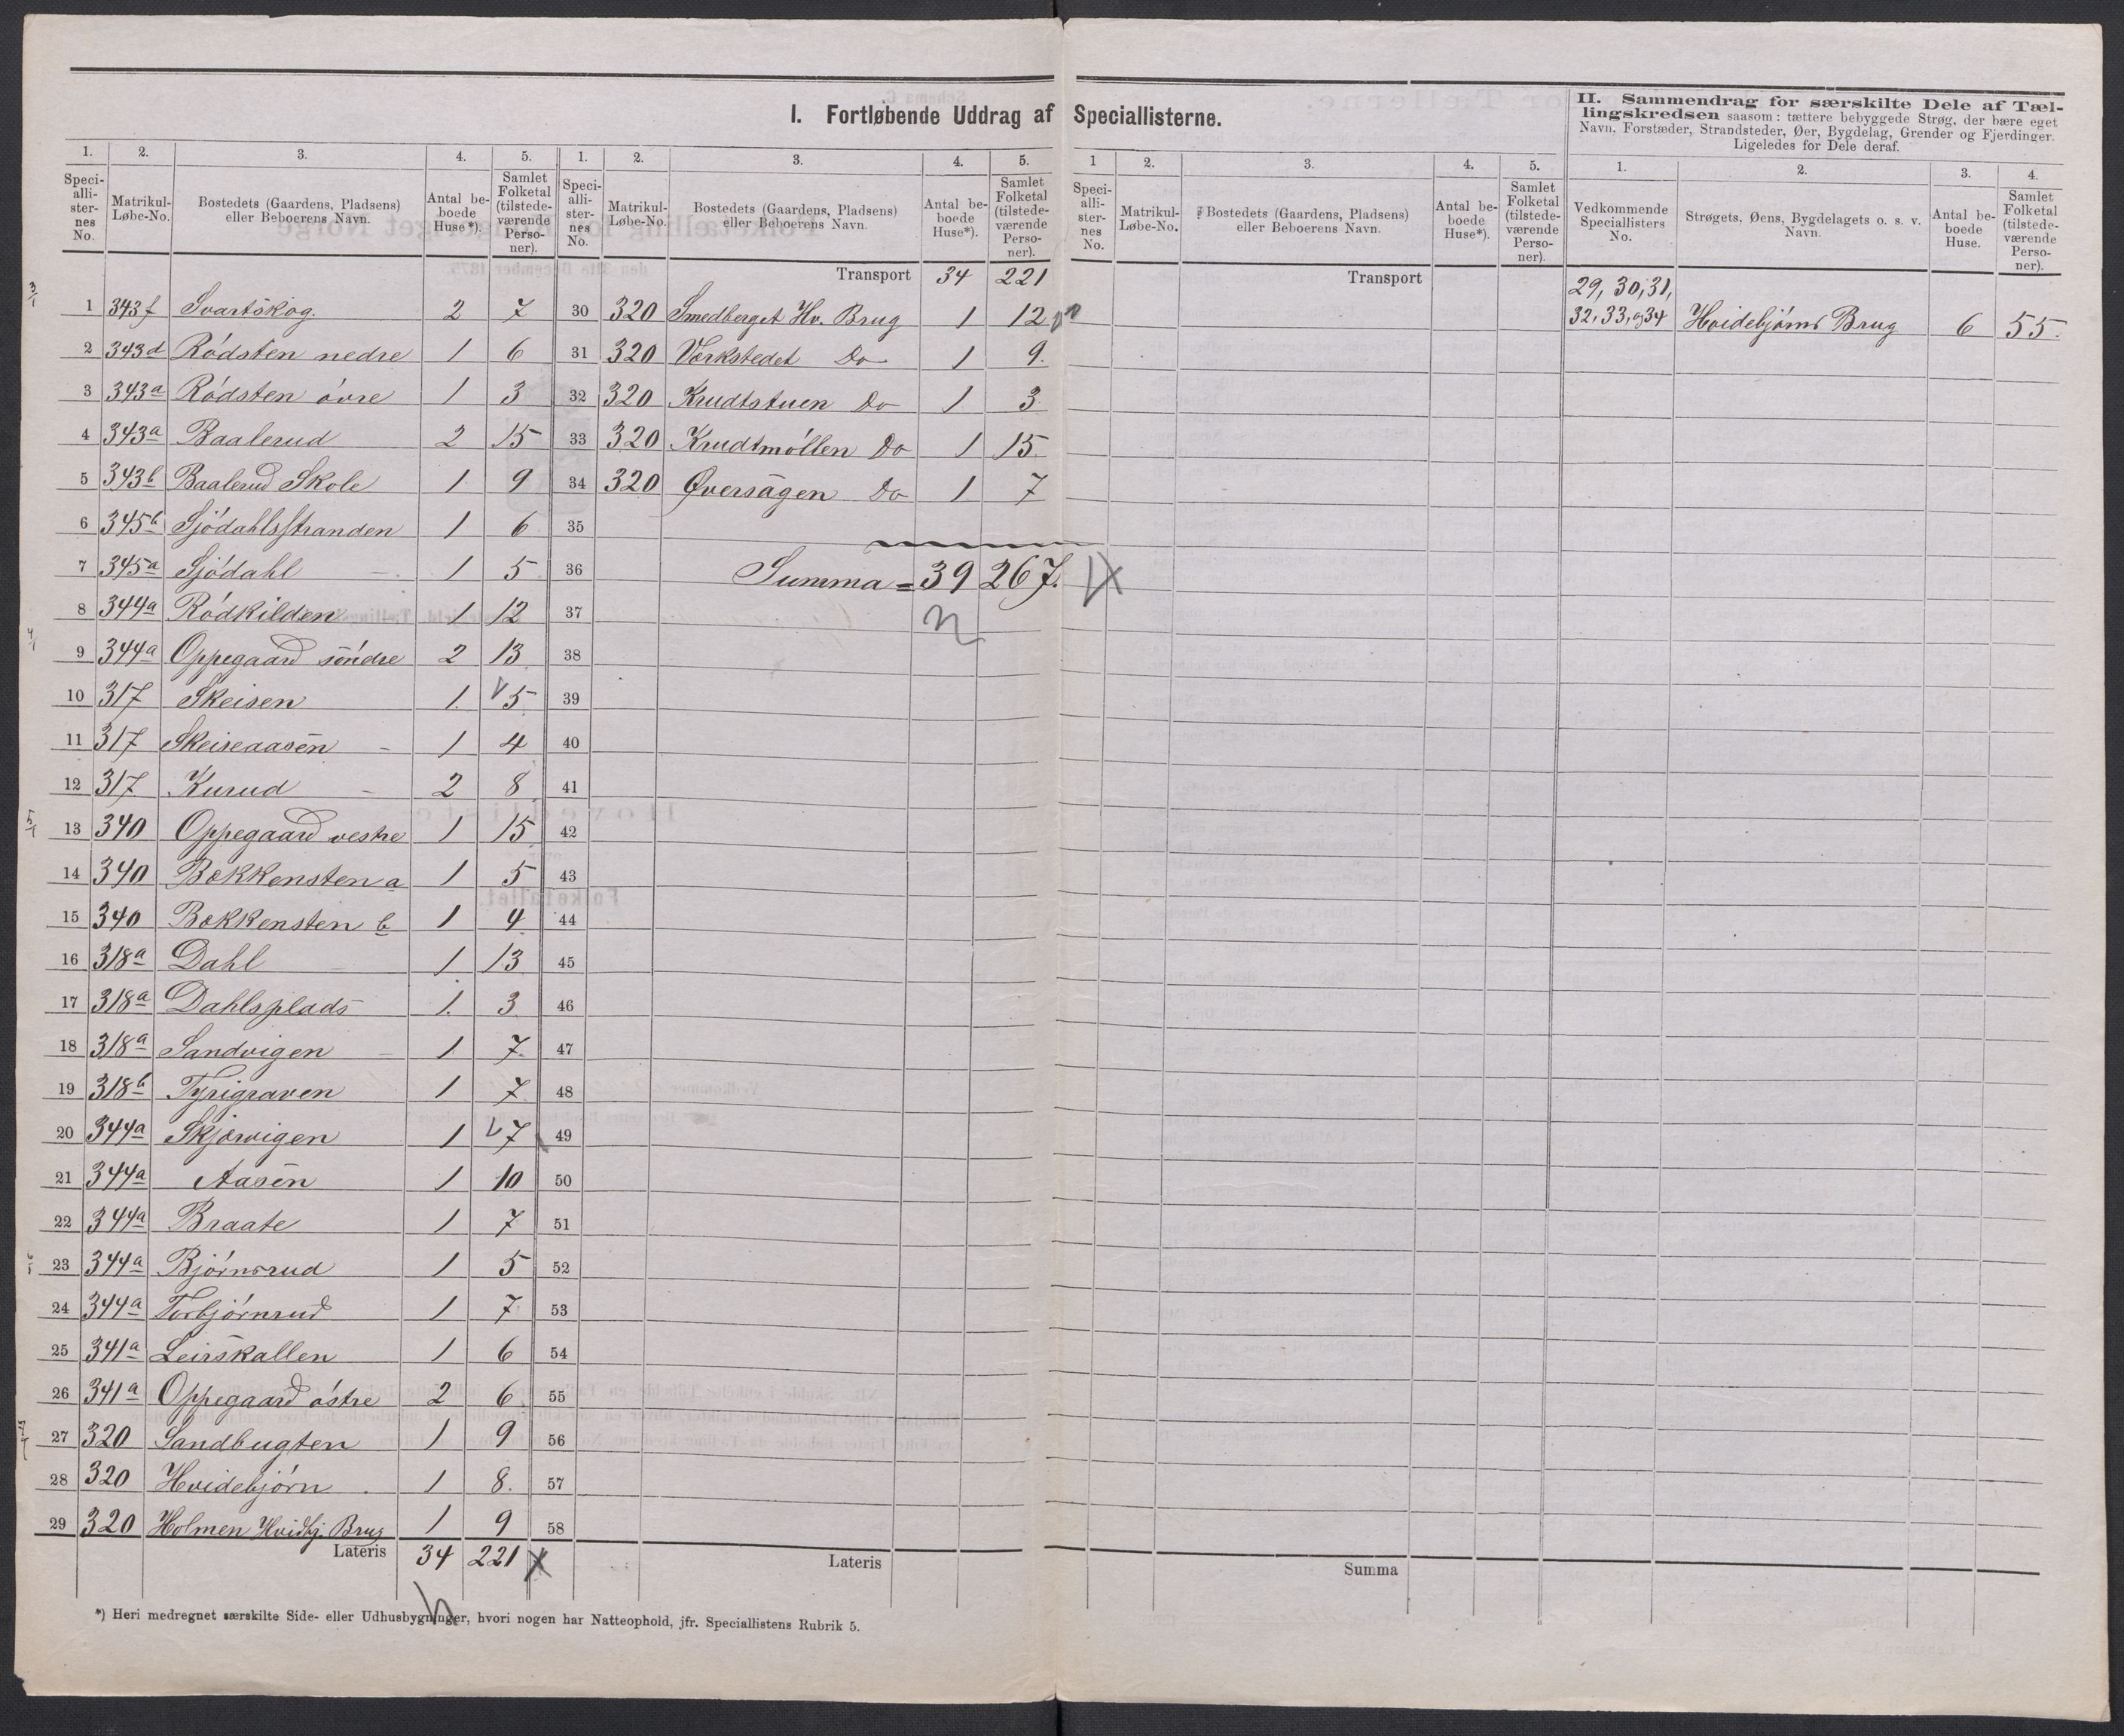 I. Fortløbende Uddrag af Speciallisterne.
1. 2. 3. 4. 5.
Speciallisternes No. Matrikul-Løbe-No. Bostedets (Gaardens, Pladsens) eller Beboerens Navn. Antal beboede Huse*). Samlet Folketal (tilstedeværende Personer).
1 343f Svartskog. 2 7
2 343d Rödsten nedre 1 6
3 343a Rödsten övre 1 3
4 343a Baalerud 2 15
5 343b Baalerud Skole 1 9
6 345b Sjödahlsstranden 1 6
7 345a Sjödahl 1 5
8 344a Rödkilden 1 12
9 344a Oppegaard söndre 2 13
10 317 Skeisen 1. 5
11 317 Skeiseaasen 1 4
12 317 Kurud 2 8
13 340 Oppegaard vestre 1 15
14 340 Bækkensten a 1 5
15 340 Bækkensten b 1 4
16 318a Dahl 1 13
17 318a Dahlsplads 1. 3
18 318a Sandvigen 1 7
19 318b Tyrigraven 1 7
20 344a Skjærvigen 1 7
21 344a Aasen 1 10
22 344a Braate 1 7
23 344a Björnsrud 1 5
24 344a Torbjörnrud 1 7
25 341a Leirskallen 1 6
26 341a Oppegaard östre 2 6
27 320 Sandbugten 1 9
28 320 Hvidebjörn 1 8.
29 320 Holmen Hvidbj. Brug 1 9
Lateris 34 221
*) Heri medregnet særskilte Side- eller Udhusbygninger, hvori nogen har Natteophold, jfr. Speciallistens Rubrik 5.
1. 2. 3. 4. 5.
Speciallisternes No. Matrikul-Løbe-No. Bostedets (Gaardens, Pladsens) eller Beboerens Navn. Antal beboede Huse*). Samlet Folketal (tilstedeværende Personer).
Transport 34 221
30 320 Smedberget Hv. Brug 1 12
31 320 Værkstedet Do 1 9.
32 320 Krudtstuen Do 1 3
33 320 Krudtmöllen Do 1 15
34 320 Øversagen Do 1 7
35
36 Summa = 39 267.
37
38
39
40
41
42
43
44
45
46
47
48
49
50
51
52
53
54
55
56
57
58
Lateris
1 2. 3. 4. 5.
Speciallisternes No. Matrikul-Løbe-No. Bostedets (Gaardens, Pladsens) eller Beboerens Navn. Antal beboede Huse*). Samlet Folketal (tilstedeværende Personer).
Transport
Summa
II. Sammendrag for særskilte Dele af Tæl-
lingskredsen saasom: tættere bebyggede Strøg, der bære eget
Navn, Forstæder, Strandsteder, Øer, Bygdelag, Grender og Fjerdinger.
Ligeledes for Dele deraf.
1. 2. 3. 4.
Vedkommende Speciallisters No. Strøgets, Øens, Bygdelagets o. s. v. Navn. Antal beboede Huse. Samlet Folketal (tilstedeværende Personer).
29, 30, 31,
32, 33, og 34 Hvidebjörns Brug 6 55.